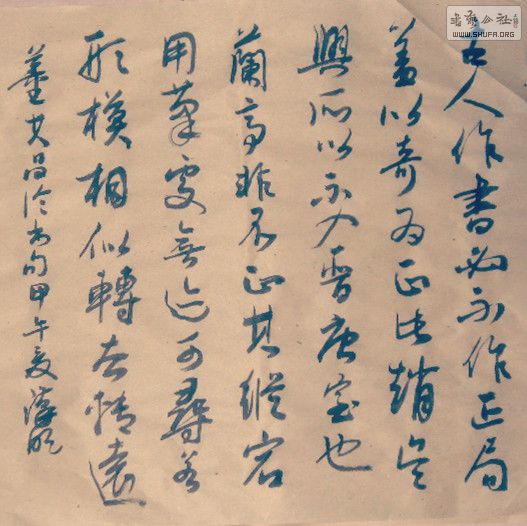 古人作書必不作正局
盖以奇为正此趙吳
興所以不入晋唐室也
蘭亭非不正其縱宕
用筆處無迹可尋若
形模相似轉去遠
董其昌论书句甲午夏
書法公社
WWW.SHUFA.ORG